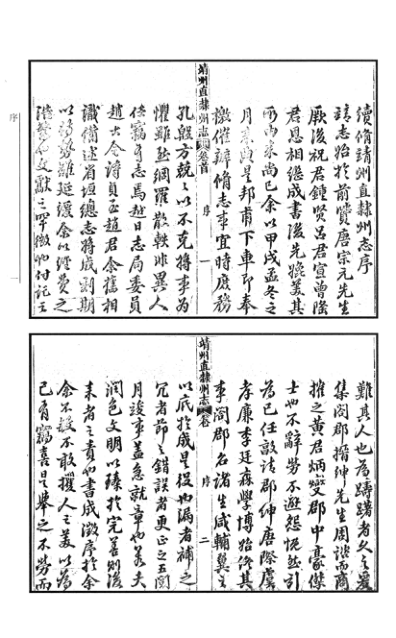 續修靖州直隸州志序
靖志始於前賢唐宗元先生
厥後祝君鍾賢呂君宣曾隆
君恩相繼成書後先煥美其
所由來尚已余以甲戌孟冬之
月來涖是邦甫下車即奉
檄催辦脩志事宜時庶務
孔殷方兢兢以不克將事為
懼雖然網羅散軼非異人
任竊有志焉越日志局委員
趙士令詩員丞趙君余舊相
識備述省垣總志將成刻期
以勢難延緩余以經費之
文獻之罕徵也付託之
靖州直隸州志 卷首 序 一
難其人也為躊躇者久之爰
集闔郡搢紳先生周諮而商
推之黃君炳燮郡中豪傑
士也不辭勞不避怨慨然引
為己任敦請郡紳唐際虞
孝廉李廷森學博始終其
事闔郡名諸生咸輔翼之
以底於成是役也漏者補之
冗者節之錯誤者更正之五閱
月竣事蓋急就章也若夫
潤色文明以臻於完善則後
來者之責也書成徵序於余
余不敏不敢攘人之美以為
己有竊喜是舉之不勞而
靖州直隸州志 卷首 序 二
序